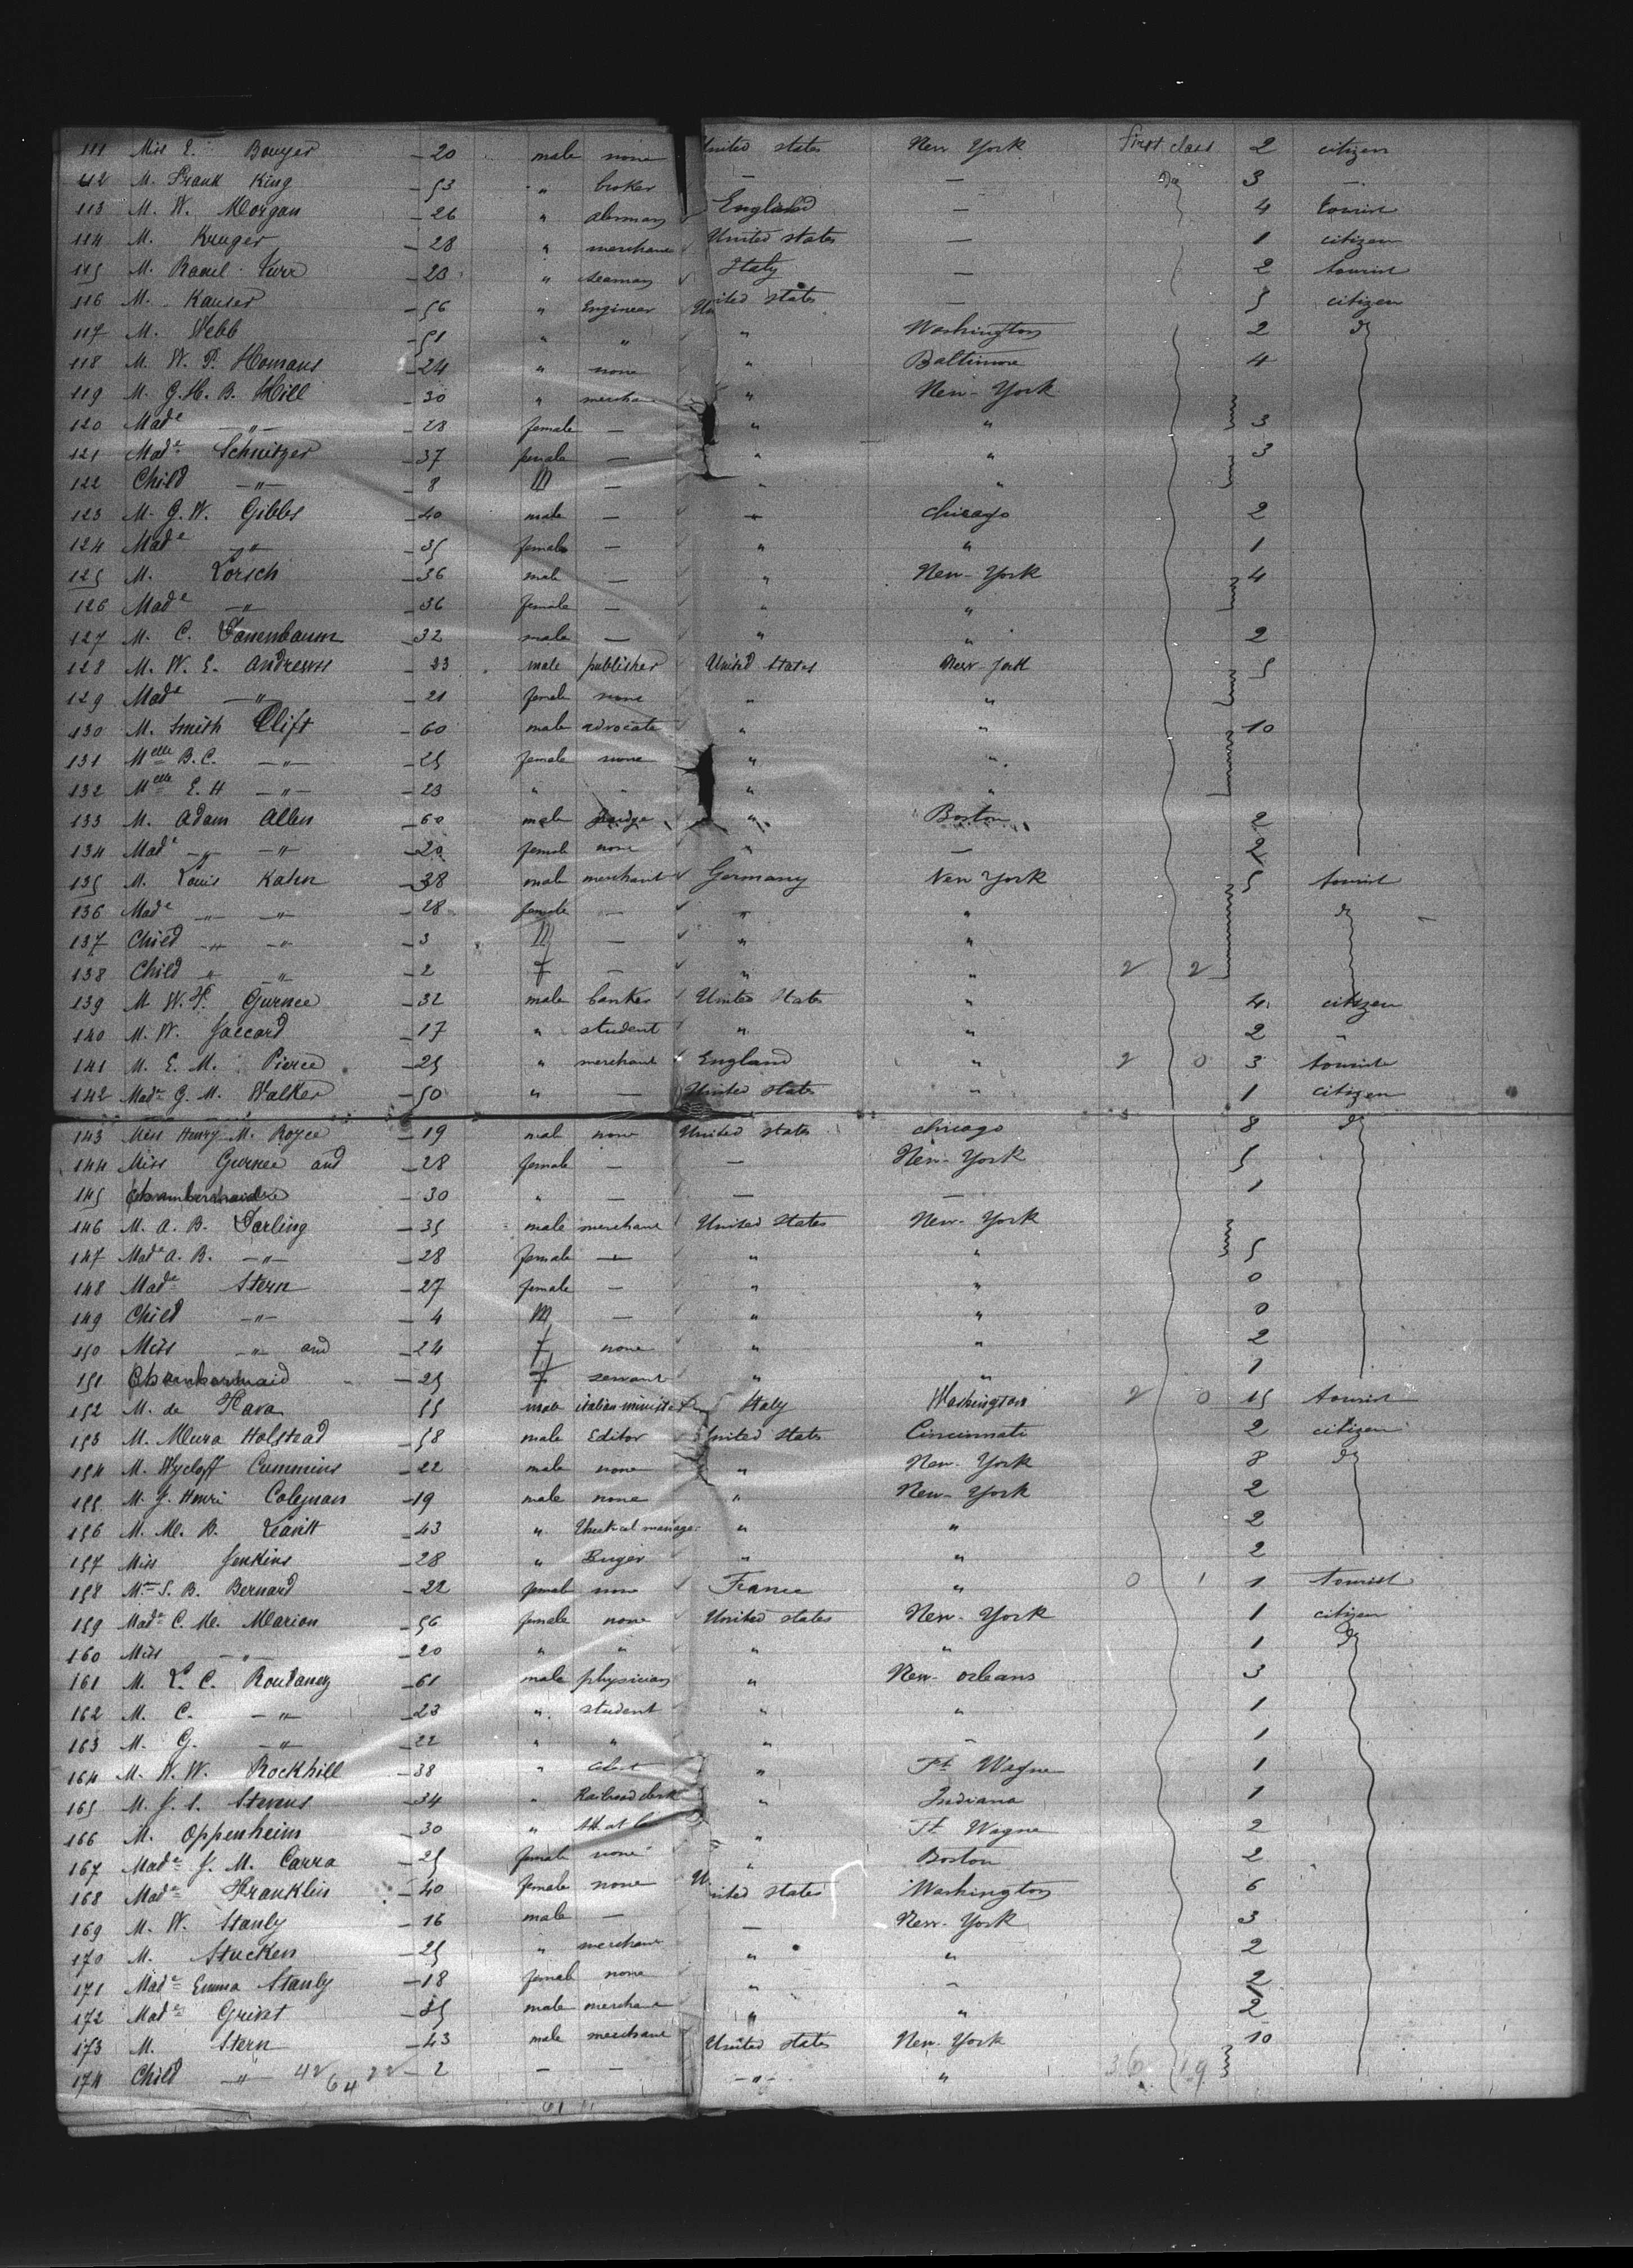 111 Miss E. Bouyer 20 male none United states New York first class 2 citizen
112 M. Frank King 53 " broker — — do 3 —
113 M. W. Morgan 26 " England — 4 tourist
114 M. Kruger 28 " merchant United states — 1 citizen
115 M. Raoul 23 " seaman Italy — 2 tourist
116 M. Kauser 56 " Engineer United states — 5 citizen
117 M. Webb 51 " " " Washington 2 do
118 M. W. P. Homans 24 " none " Baltimore 4
119 M. G. H. B. Hill 30 " merchant " New-York
120 Made —"— 28 female — " " 3
121 Made Schnitzer 37 female — " " 3
122 Child —"— 8 M — " "
123 M. G. W. Gibbs 40 male — — chicago 2
124 Made —"— 35 female — " " 1
125 M. Lorsch 36 male — " New-York 4
126 Made —"— 36 female — " "
127 M. C. Tanenbaum 32 male — " " 2
128 M. W. E. Andrews 33 male publisher United states New-York 5
129 Made —"— 21 female none " "
130 M. Smith Clift 60 male advocate " " 10
131 Melle B. C. —"— 25 female none " "
132 Melle E. H —"— 23 " " " "
133 M. Adam Allen 60 male " Boston 2
134 Made —"— —"— 20 female none " — 2
135 M. Louis Kahn 38 male merchant Germany New York 5 tourist
136 Made —"— —"— 28 female — " " do
137 Child —"— —"— 3 M — " "
138 Child " —"— 2 f — " " 2 2
139 M W. F. Gurnee 32 male banker United States " 4 citizen
140 M. W. Jaccard 17 " student " " 2 "
141 M. E. M. Pierce 25 " merchant England " 2 0 3 tourist
142 Made G. M. Walker 50 " — United States " 1 citizen
143 Miss Henry M. Royce 19 male none United states chicago 8 do
144 Miss Gurnee and 28 female — — New-York 5
145 Chambermaid 30 " — — — 1
146 M. A. B. Darling 35 male merchant United States New-York
147 Made A. B. —"— 28 female — " " 5
148 Made Stern 27 female — " " 0
149 Child —"— 4 M — " " 0
150 Miss —"— and 24 f none " " 2
151 Chambermaid 25 f servant " " 1
152 M. de Fava 55 male italian minister Italy Washington 2 0 15 tourist
153 M. Mura Halstead 58 male Editor United States Cincinnati 2 citizen
154 M. Wycloff Cummins 22 male none " New-York 8 do
155 M. J. Henri Coleman 19 male none " New-York 2
156 M. M. B. Leavitt 43 " Theatrical manager " " 2
157 Miss Jenkins 28 " Singer " " 2
158 Mme S. B. Bernard 22 female none France " 0 1 1 tourist
159 Made C. M. Marion 56 female none United states New-York 1 citizen
160 Miss —"— 20 " " " " 1 do
161 M. L. C. Roudanez 61 male physician " New-orleans 3
162 M. C. —"— 23 " student " " 1
163 M. G. —"— 22 " " " — 1
164 M. W. W. Rockhill 38 " " Ft Wayne 1
165 M. J. S. Stevens 34 " Railroad clerk " Indiana 1
166 M. Oppenheim 30 " Att at law " Ft Wayne 2
167 Made J. M. Carra 25 female none " Boston 2
168 Made Franklin 40 female none United states Washington 6
169 M. W. Stanly 16 male — — New-York 3
170 M. Stucken 25 " merchant " " 2
171 Made Emma Stanly 18 female none " — 2
172 Made 35 male merchant " " 2
173 M. Stern 43 male merchant United states New-York 10
174 Child —"— 42 64 22 2 — — —"— " 36 19